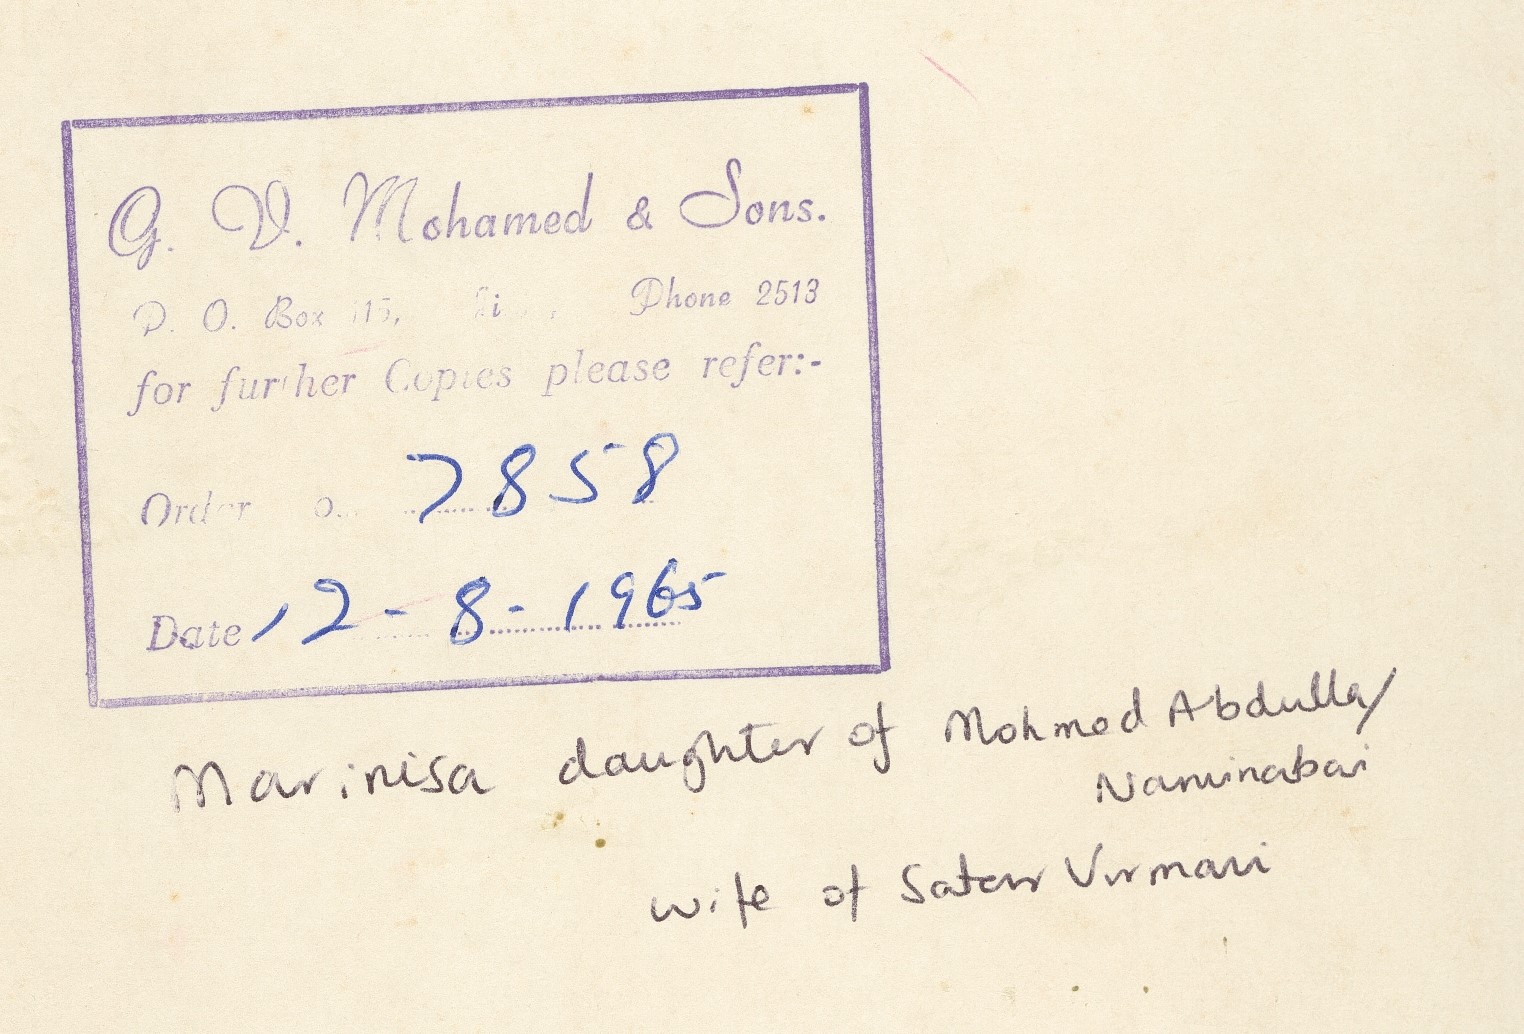 G. V. Mohamed & Sons.
P. O. Box 115, Phone 2513
for further Copies please refer:-
Order 7858
Date 12-8-1965
Marinisa daughter of Mohmed Abdulla/
Naminabai
wife of Satar Virmani